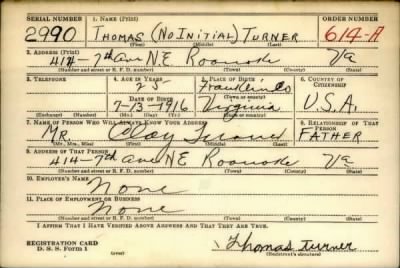 SERIAL NUMBER 1. NAME (Print) ORDER NUMBER
2990 THOMAS (NO INITIAL) TURNER 614-A
(First) (Middle) (Last)
2. ADDRESS (Print)
414- 7th ave N.E. Roanoke Va
(Number and street or R. F. D. number) (Town) (County) (State)
3. TELEPHONE 4. AGE IN YEARS 5. PLACE OF BIRTH 6. COUNTRY OF CITIZENSHIP
25 Franklin Co
DATE OF BIRTH (Town or county)
7-13-1916 Virginia U.S.A.
(Mo.) (Day) (Yr.) (State or country)
7. NAME OF PERSON WHO WILL ALWAYS KNOW YOUR ADDRESS 8. RELATIONSHIP OF THAT PERSON
MR. Turner FATHER
(Mr., Mrs., Miss) (First) (Middle) (Last)
9. ADDRESS OF THAT PERSON
414-7th ave NE Roanoke Va
(Number and street or R. F. D. number) (Town) (County) (State)
10. EMPLOYER'S NAME
None
11. PLACE OF EMPLOYMENT OR BUSINESS
None
(Number and street or R. F. D. number) (Town) (County) (State)
I AFFIRM THAT I HAVE VERIFIED ABOVE ANSWERS AND THAT THEY ARE TRUE.
REGISTRATION CARD
D. S. S. Form 1
Thomas Turner
(Registrant's signature)